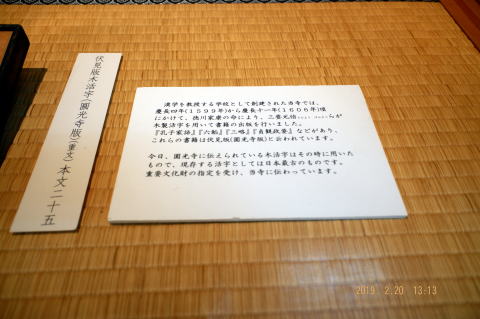 伏見版木活字(圓光寺版)(重文) 本文二十五
漢学を教授する学校として創建された当寺では、
慶長四年(1599年)から慶長十一年(1606年)頃
にかけて、徳川家康の命により、三要元佶らが
木製活字を用いて書籍の出版を行いました。
『孔子家語』『六韜』『三略』『貞観政要』などがあり、
これらの書籍は伏見版(圓光寺版)と云われています。
今日、圓光寺に伝えられている木活字はその時に用いた
もので、現存する活字としては日本最古のものです。
重要文化財の指定を受け、当寺に伝わっています。
2019 2.20 13:13